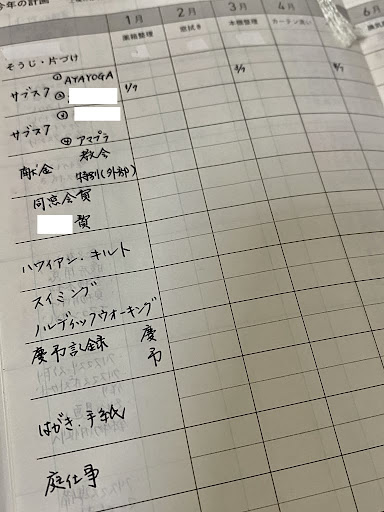 今年の計画
1月 2月 3月 4月 6月
書類整理 窓拭き 本棚整理 カーテン洗い 換気
そうじ・片づけ
サブスク ① AYAYOGA 1/7 3/7 5/7
②
サブスク ③
④ アマプラ
献金 教会
特別(外部)
同窓会費
費
ハワイアン・キルト
スイミング
ノルディックウオーキング
慶弔記録 慶
弔
はがき・手紙
庭仕事